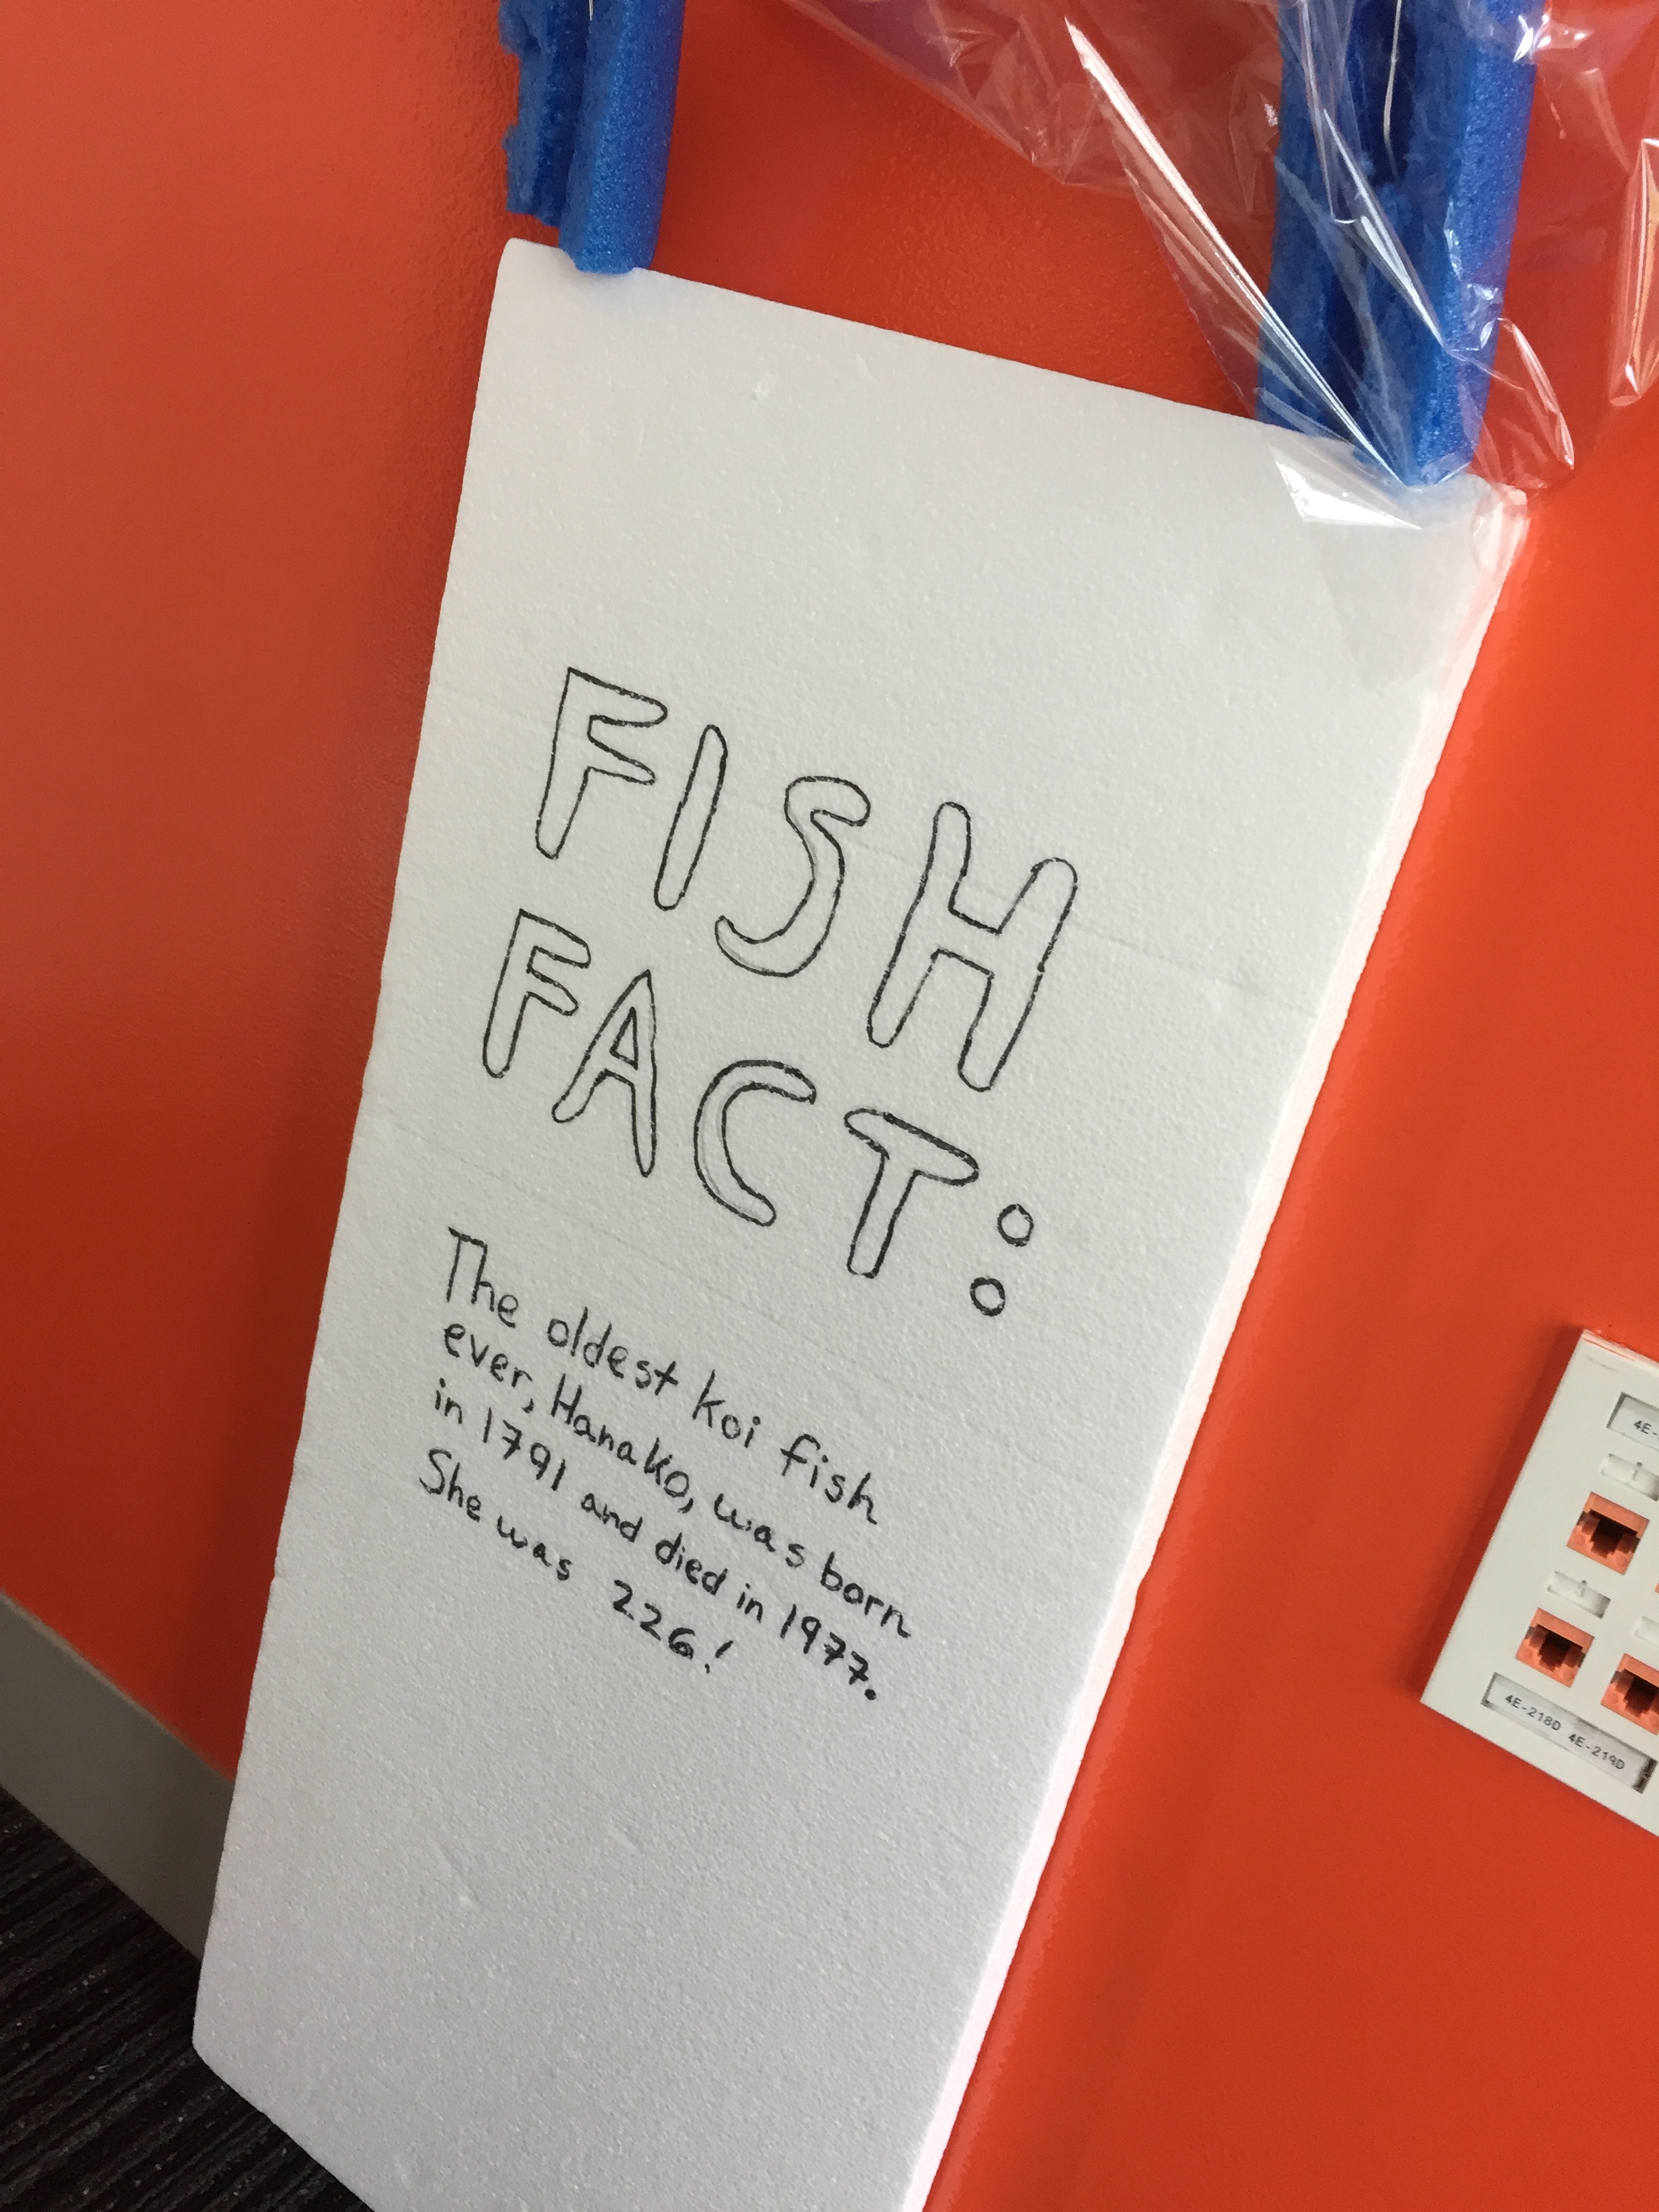 FISH
FACT:
The oldest koi fish
ever, Hanako, was born
in 1791 and died in 1977.
She was 226!
4E-218D 4E-219D